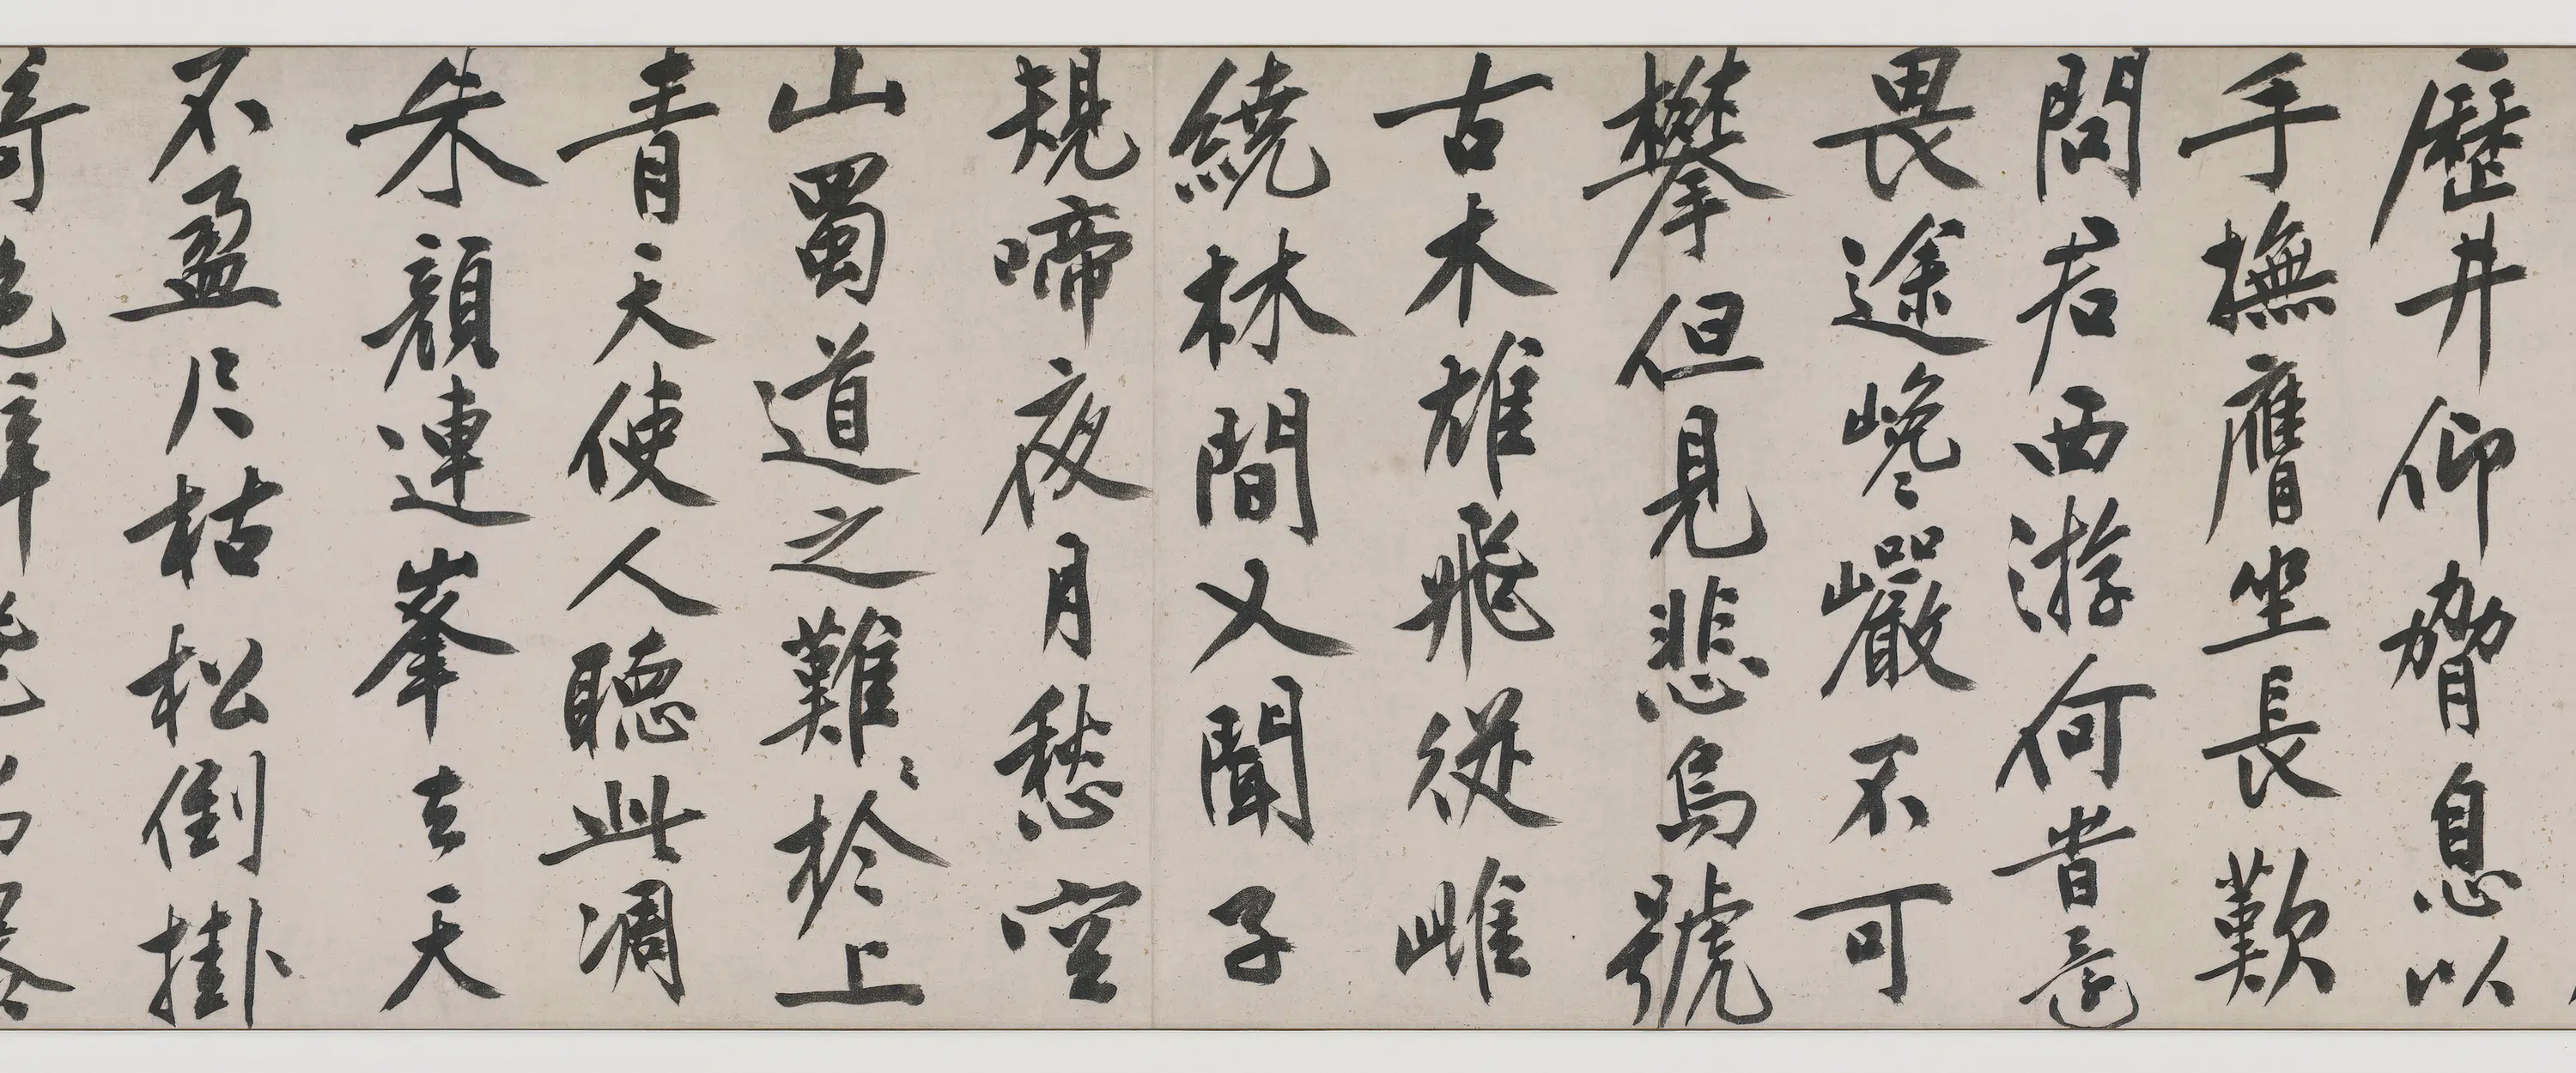 歷井仰脅息以
手撫膺坐長歎
問君西游何旹還
畏途巉巖不可
攀但見悲鳥號
古木雄飛從雌
繞林間又聞子
規啼夜月愁空
山蜀道之難〻於上
青天使人聽此凋
朱顏連峯去天
不盈尺枯松倒掛